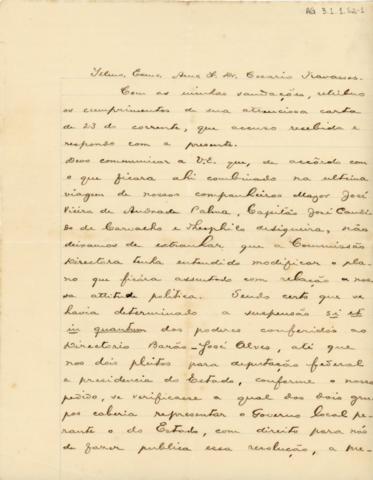 AG 3.1.1.62-1
Illmo. Exmo. Amo. Sr. Dr. Cesario Travassos.
Com as minhas saudações, retribuo
os cumprimentos de sua attenciosa carta
de 23 do corrente, que accuso recebida e
respondo com a presente.
Devo communicar a V.E. que, de accôrdo com
o que ficara ahi combinado na ultima
viagem de nossos companheiros Major José
Vieira de Andrade Palma, Capitão José Candi
do de Carvalho e Theophilo não
deixamos de extranhar que a Commissão
Directora tenha entendido modificar o pla
no que ficára assentado com relação a nos
sa attitude politica. Sendo certo que se
havia determinado a suspensão si et
in quantum dos poderes conferidos ao
Directorio Barão-José Alves, até que
nos dois pleitos para deputação federal
e presidencia do Estado, conforme o nosso
pedido, se verificasse a qual dos dois gru
pos caberia representar o Governo local pe
rante o do Estado, com direito para nós
de fazer publica essa resolução, a pre-